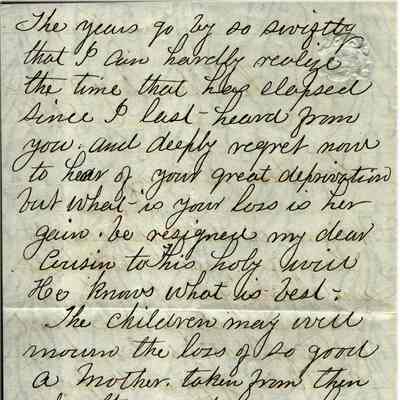 The years go by so swiftly
that I can hardly realize
the time that has elapsed
since I last heard from
you. and deeply regret now
to hear of your great deprivation
but what is your loss is her
gain. be resigned my dear
Cousin to His holy will
He knows what is best.
The children may well
mourn the loss of so good
a Mother. taken from them